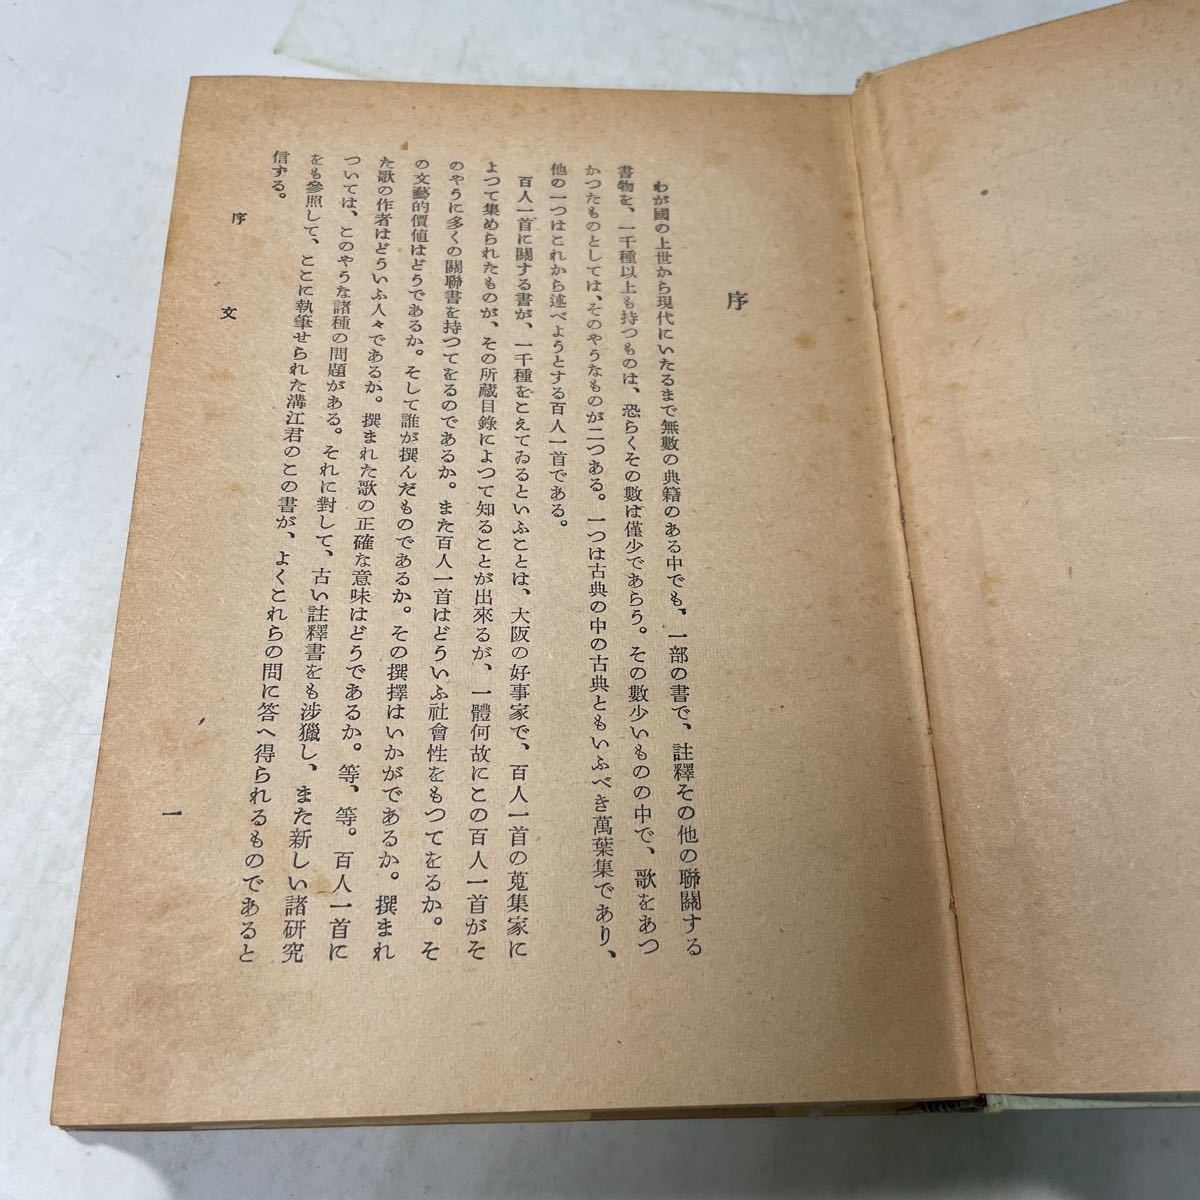 序
わが國の上世から現代にいたるまで無數の典籍のある中でも、一部の書で、註釋その他の聯關する
書物を、一千種以上も持つものは、恐らくその數は僅少であらう。その數少いものの中で、歌をあつ
かつたものとしては、そのやうなものが二つある。一つは古典の中の古典ともいふべき萬葉集であり、
他の一つはこれから述べようとする百人一首である。
百人一首に關する書が、一千種をこえてゐるといふことは、大阪の好事家で、百人一首の蒐集家に
よつて集められたものが、その所藏目錄によつて知ることが出來るが、一體何故にこの百人一首がそ
のやうに多くの關聯書を持つてをるのであるか。また百人一首はどういふ社會性をもつてをるか。そ
の文藝的價値はどうであるか。そして誰が撰んだものであるか。その撰擇はいかがであるか。撰まれ
た歌の作者はどういふ人々であるか。撰まれた歌の正確な意味はどうであるか。等、等。百人一首に
ついては、このやうな諸種の問題がある。それに對して、古い註釋書をも涉獵し、また新しい諸研究
をも參照して、ここに執筆せられた溝江君のこの書が、よくこれらの問に答へ得られるものであると
信ずる。
序文
一